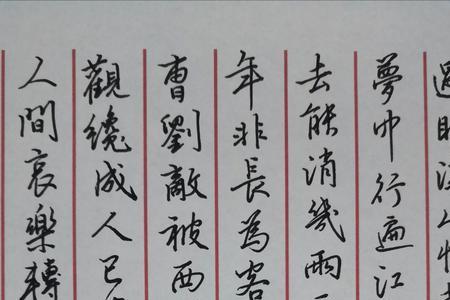 過眼溪山怪
夢中行遍江
去能消幾兩
年非長為客
曹劉敵被西
觀纔成人已
人間哀樂轉